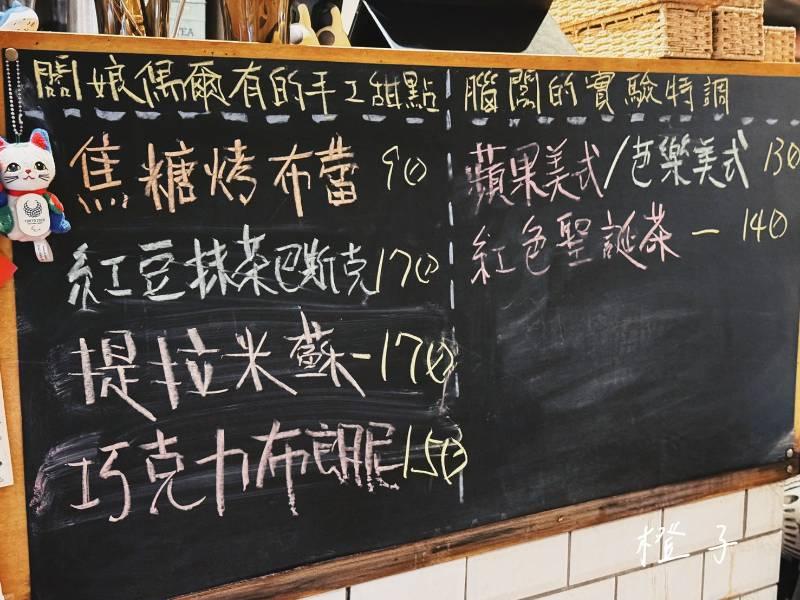 闆娘偶爾有的手工甜點
焦糖烤布蕾 90
紅豆抹茶巴斯克 170
提拉米蘇-170
巧克力布朗尼 150
腦闆的實驗特調
蘋果美式/芭樂美式 130
紅色聖誕茶 - 140
橙子